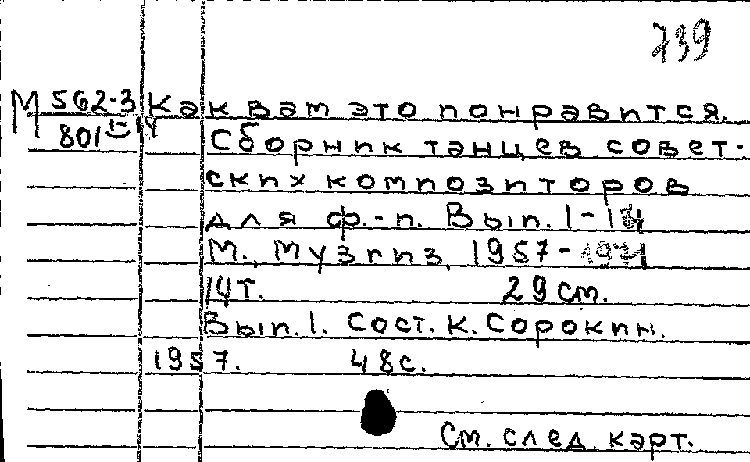 739
М 562-3 Как вам это понравится.
801 I-14 Сборник танцев совет-
ских композиторов
для ф.-п. Вып. 1-14
М., Музгиз, 1957-1971
14 т. 29 см.
Вып. 1. Сост. К. Сорокин.
1957. 48 с.
См. след. карт.